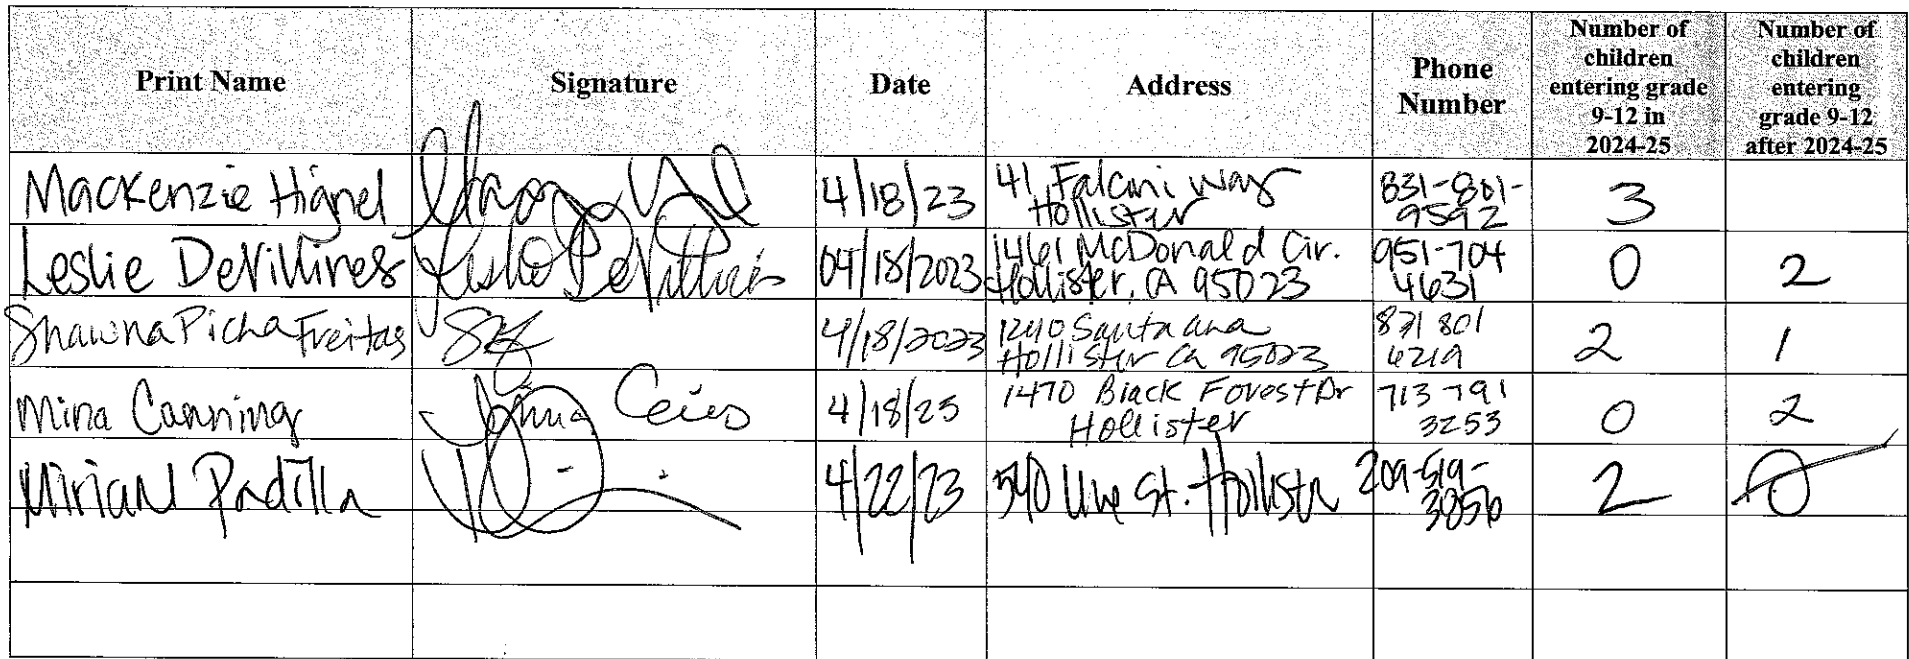 Print Name
Signature
Date
Address
Phone
Number
Number of
children
entering grade
9-12 in
2024-25
Number of
children
entering
grade 9-12
after 2024-25
Mackenzie Hignel
4/18/23
41 Falconi way
Hollister
831-801-
9592
3
Leslie DeVillines
Leslie DeVillines
04/18/2023
1461 McDonald Cir.
Hollister, CA 95023
951-704
4631
0
2
Shawna Picha Freitas
4/18/2023
1240 Santa ana
Hollister Ca 95023
831 801
6219
2
1
Mina Canning
4/18/25
1470 Black Forest Dr
Hollister
713 791
3253
0
2
Miriam Padilla
4/22/23
540 Line St. Hollistr
209-519-
3856
2
0